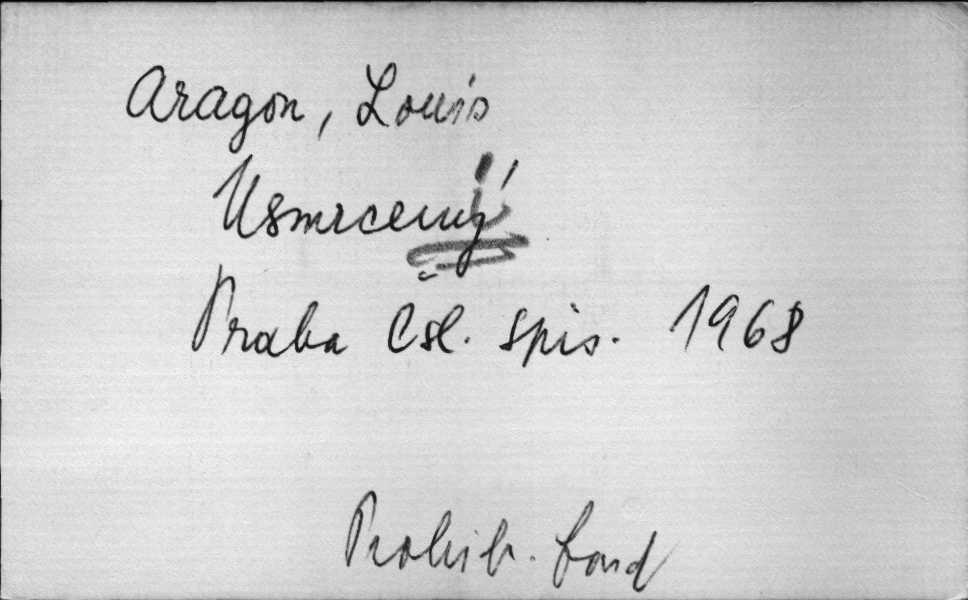 Aragon, Louis
Usmrcený
Praha Čsl. spis. 1968
Prohib. fond